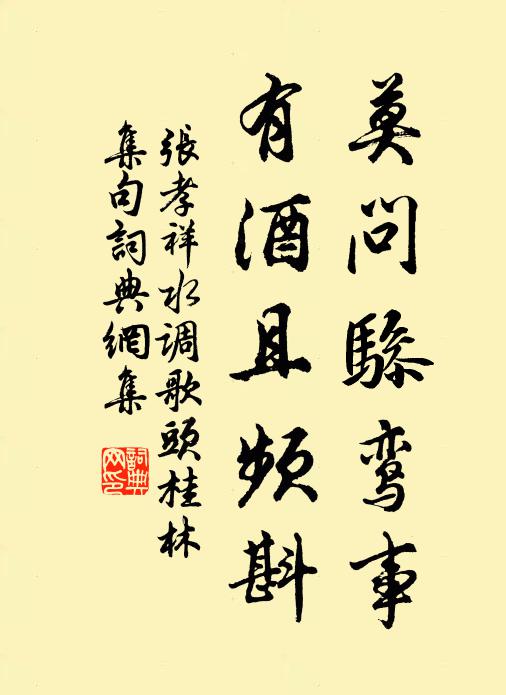 莫问驂鸾事
有酒且频斟
張孝祥水调歌頭桂林
集句詞典網集
詞典网印